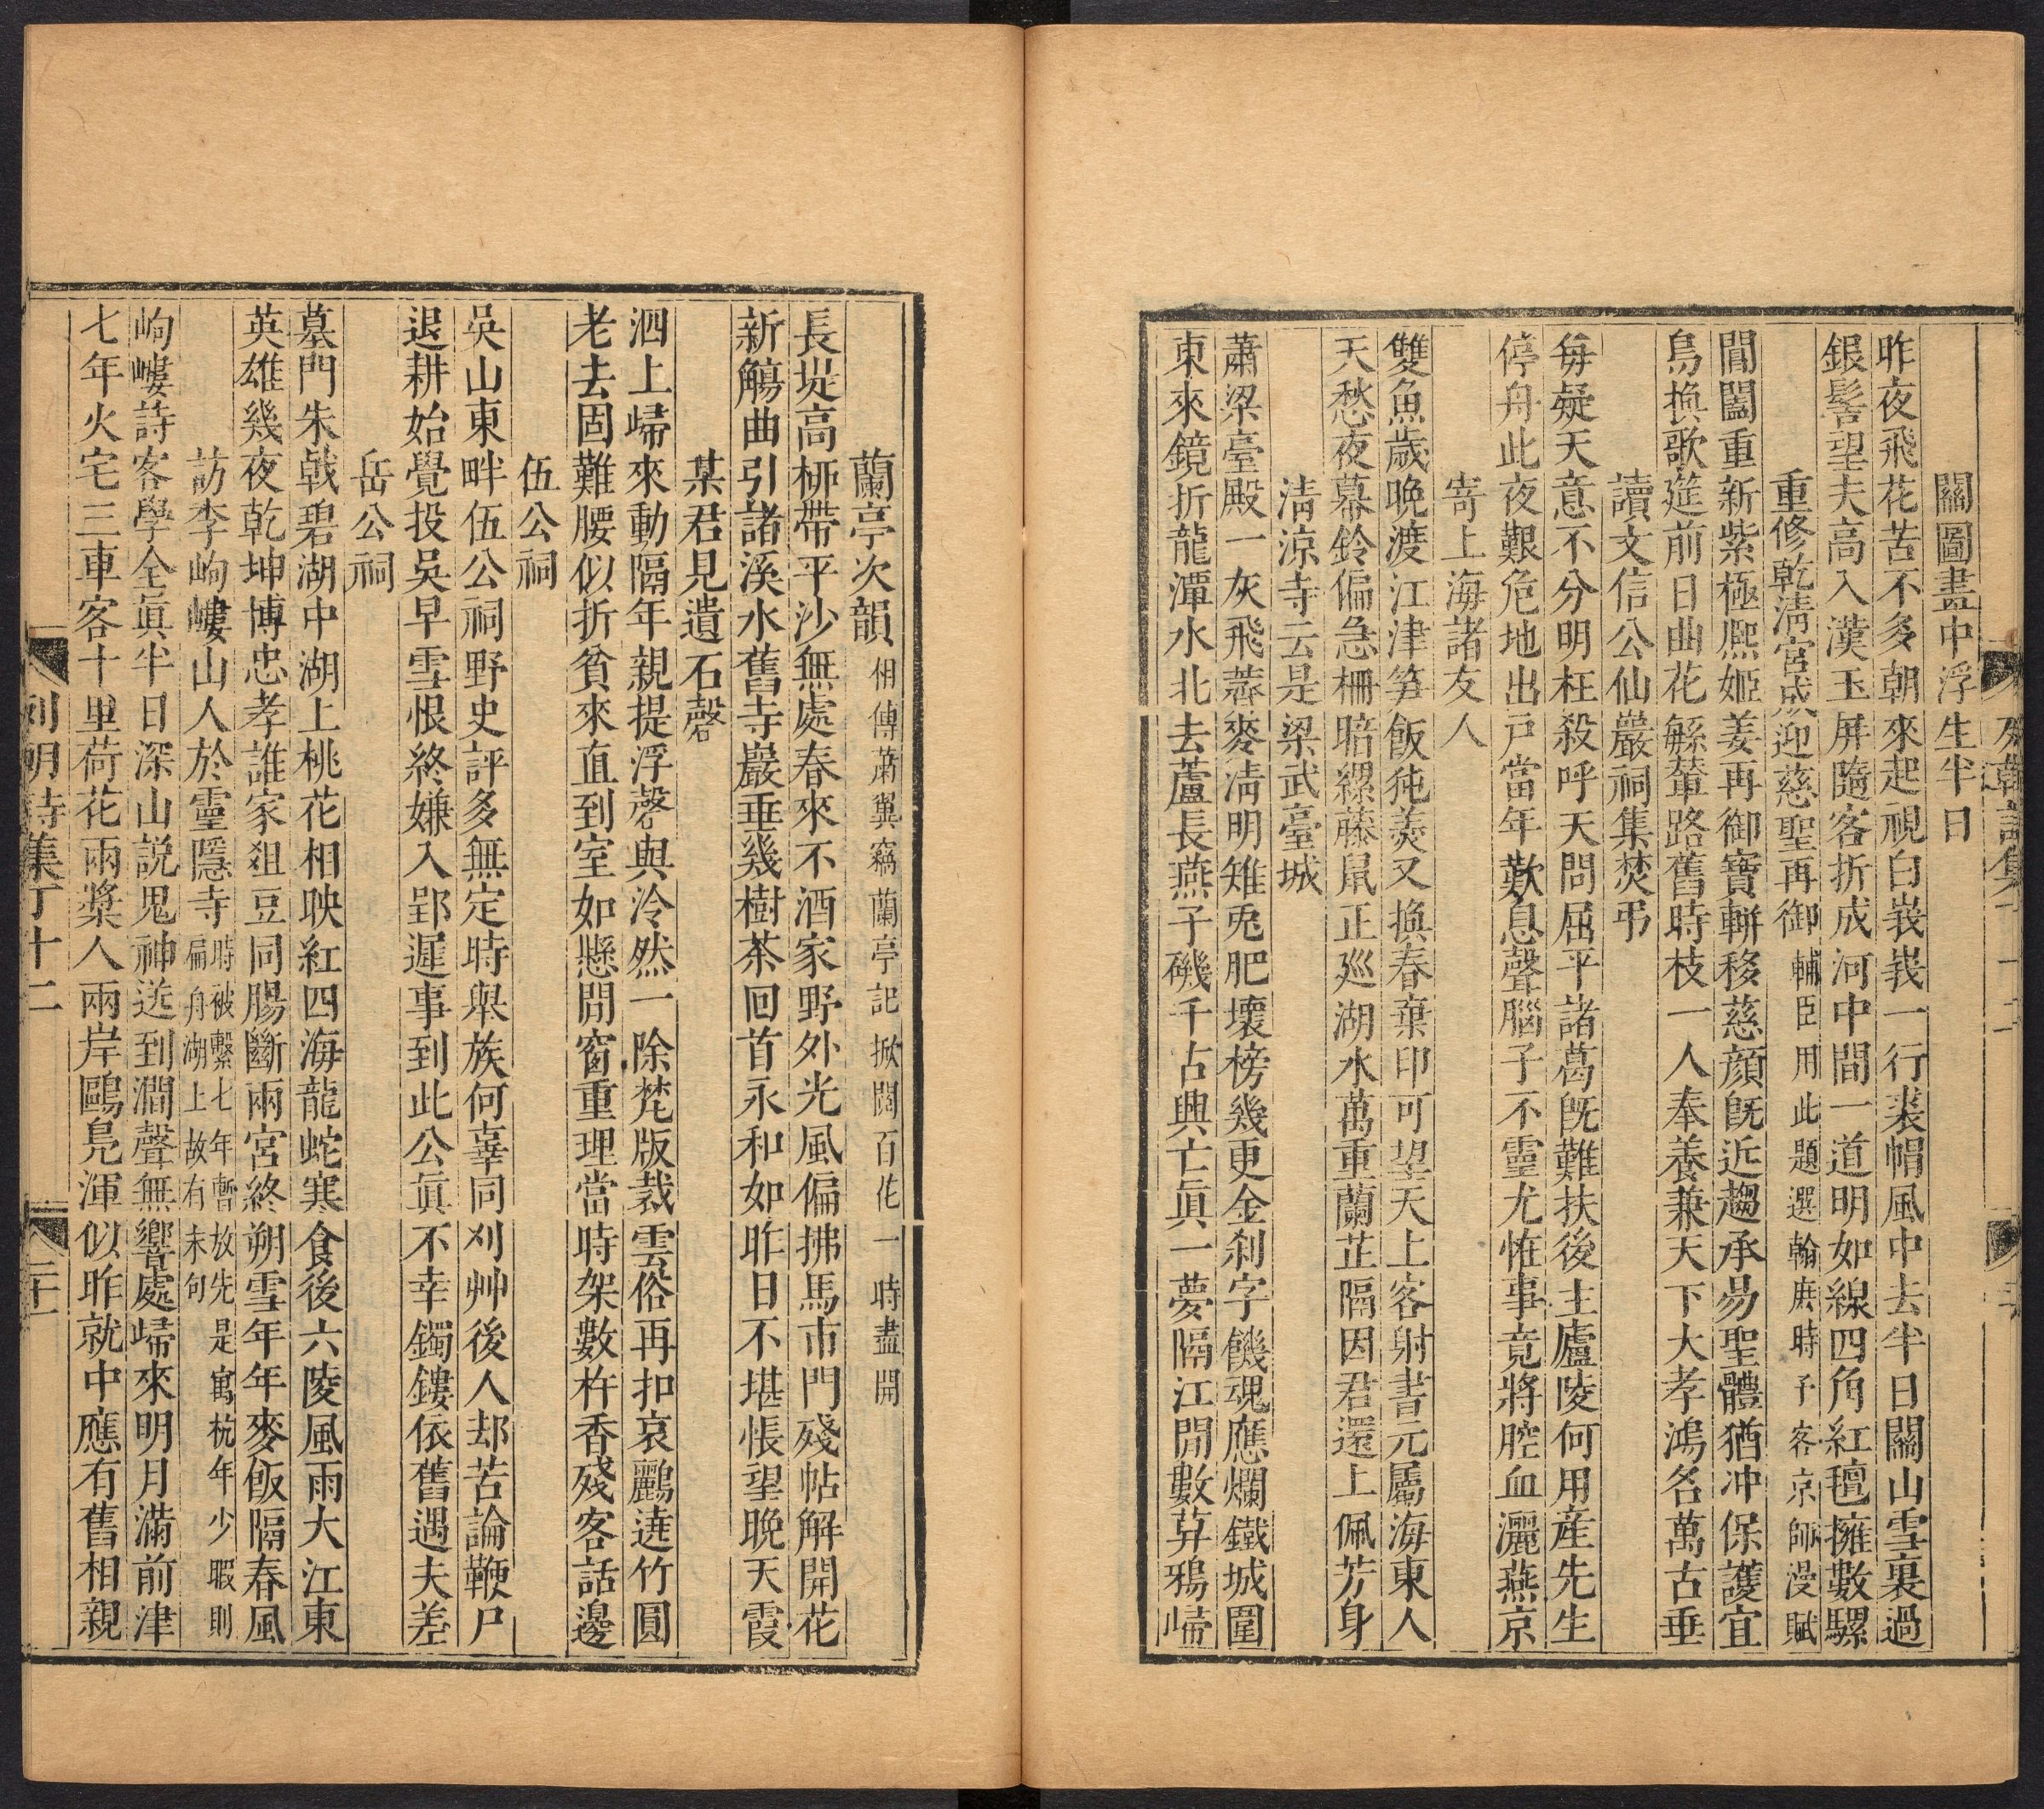 關圖畫中浮生半日
昨夜飛花苦不多朝來起視白峩峩一行裘帽風中去半日關山雪裏過
銀髻望夫高入漢玉屏隨客折成河中間一道明如線四角紅氊擁數騾
重修乾淸宮成迎慈聖再御輔臣用此題選翰庶時予客京師漫賦
閶闔重新紫極熈姬姜再御寶輧移慈顏旣近趨承易聖體猶冲保護宜
鳥換歌筵前日曲花緐輦路舊時枝一人奉養兼天下大孝鴻名萬古垂
讀文信公仙巖祠集焚弔
每疑天意不分明枉殺呼天問屈平諸葛旣難扶後主廬陵何用産先生
停舟此夜艱危地出戸當年歎息聲腦子不靈尤恠事竟將腔血灑燕京
寄上海諸友人
雙魚歲晚渡江津笋飯㹠羮又換春棄印可望天上客射書元屬海東人
天愁夜幕鈴偏急柵賠縲藤鼠正廵湖水萬重蘭芷隔因君還上佩芳身
淸涼寺云是梁武臺城
蕭梁臺殿一灰飛薺麥淸明雉兎肥壞榜幾更金刹字饑魂應爛鐵城圍
東來鏡折龍潭水北去蘆長燕子磯千古興亡眞一夢隔江閒數莽鴉歸
蘭亭次韻相傳蕭翼竊蘭亭記掀閱百花一時盡開
長堤高栁帶平沙無處春來不酒家野外光風偏拂馬市門殘帖解開花
新觴曲引諸溪水舊寺巖垂幾樹茶回首永和如昨日不堪悵望晚天霞
某君見遺石磬
泗上歸來動隔年親提浮磬與泠然一除梵版裁雲俗再扣哀鸝遶竹圓
老去固難腰似折貧來直到室如懸閒窗重理當時架數杵香殘客話邊
伍公祠
吳山東畔伍公祠野史評多無定時舉族何辜同刈艸後人却苦論鞭尸
退耕始覺投吳早雪恨終嫌入郢遲事到此公眞不幸鐲鏤依舊遇夫差
岳公祠
墓門朱戟碧湖中湖上桃花相映紅四海龍蛇寒食後六陵風雨大江東
英雄幾夜乾坤博忠孝誰家俎豆同腸斷兩宮終朔雪年年麥飯隔春風
訪李岣嶁山人於靈隱寺時被繫七年暫放先是寓杭年少暇則
扁舟湖上故有末句
岣嶁詩客學全眞半日深山説鬼神送到澗聲無響處歸來明月滿前津
七年火宅三車客十里荷花兩槳人兩岸鷗鳧渾似昨就中應有舊相親